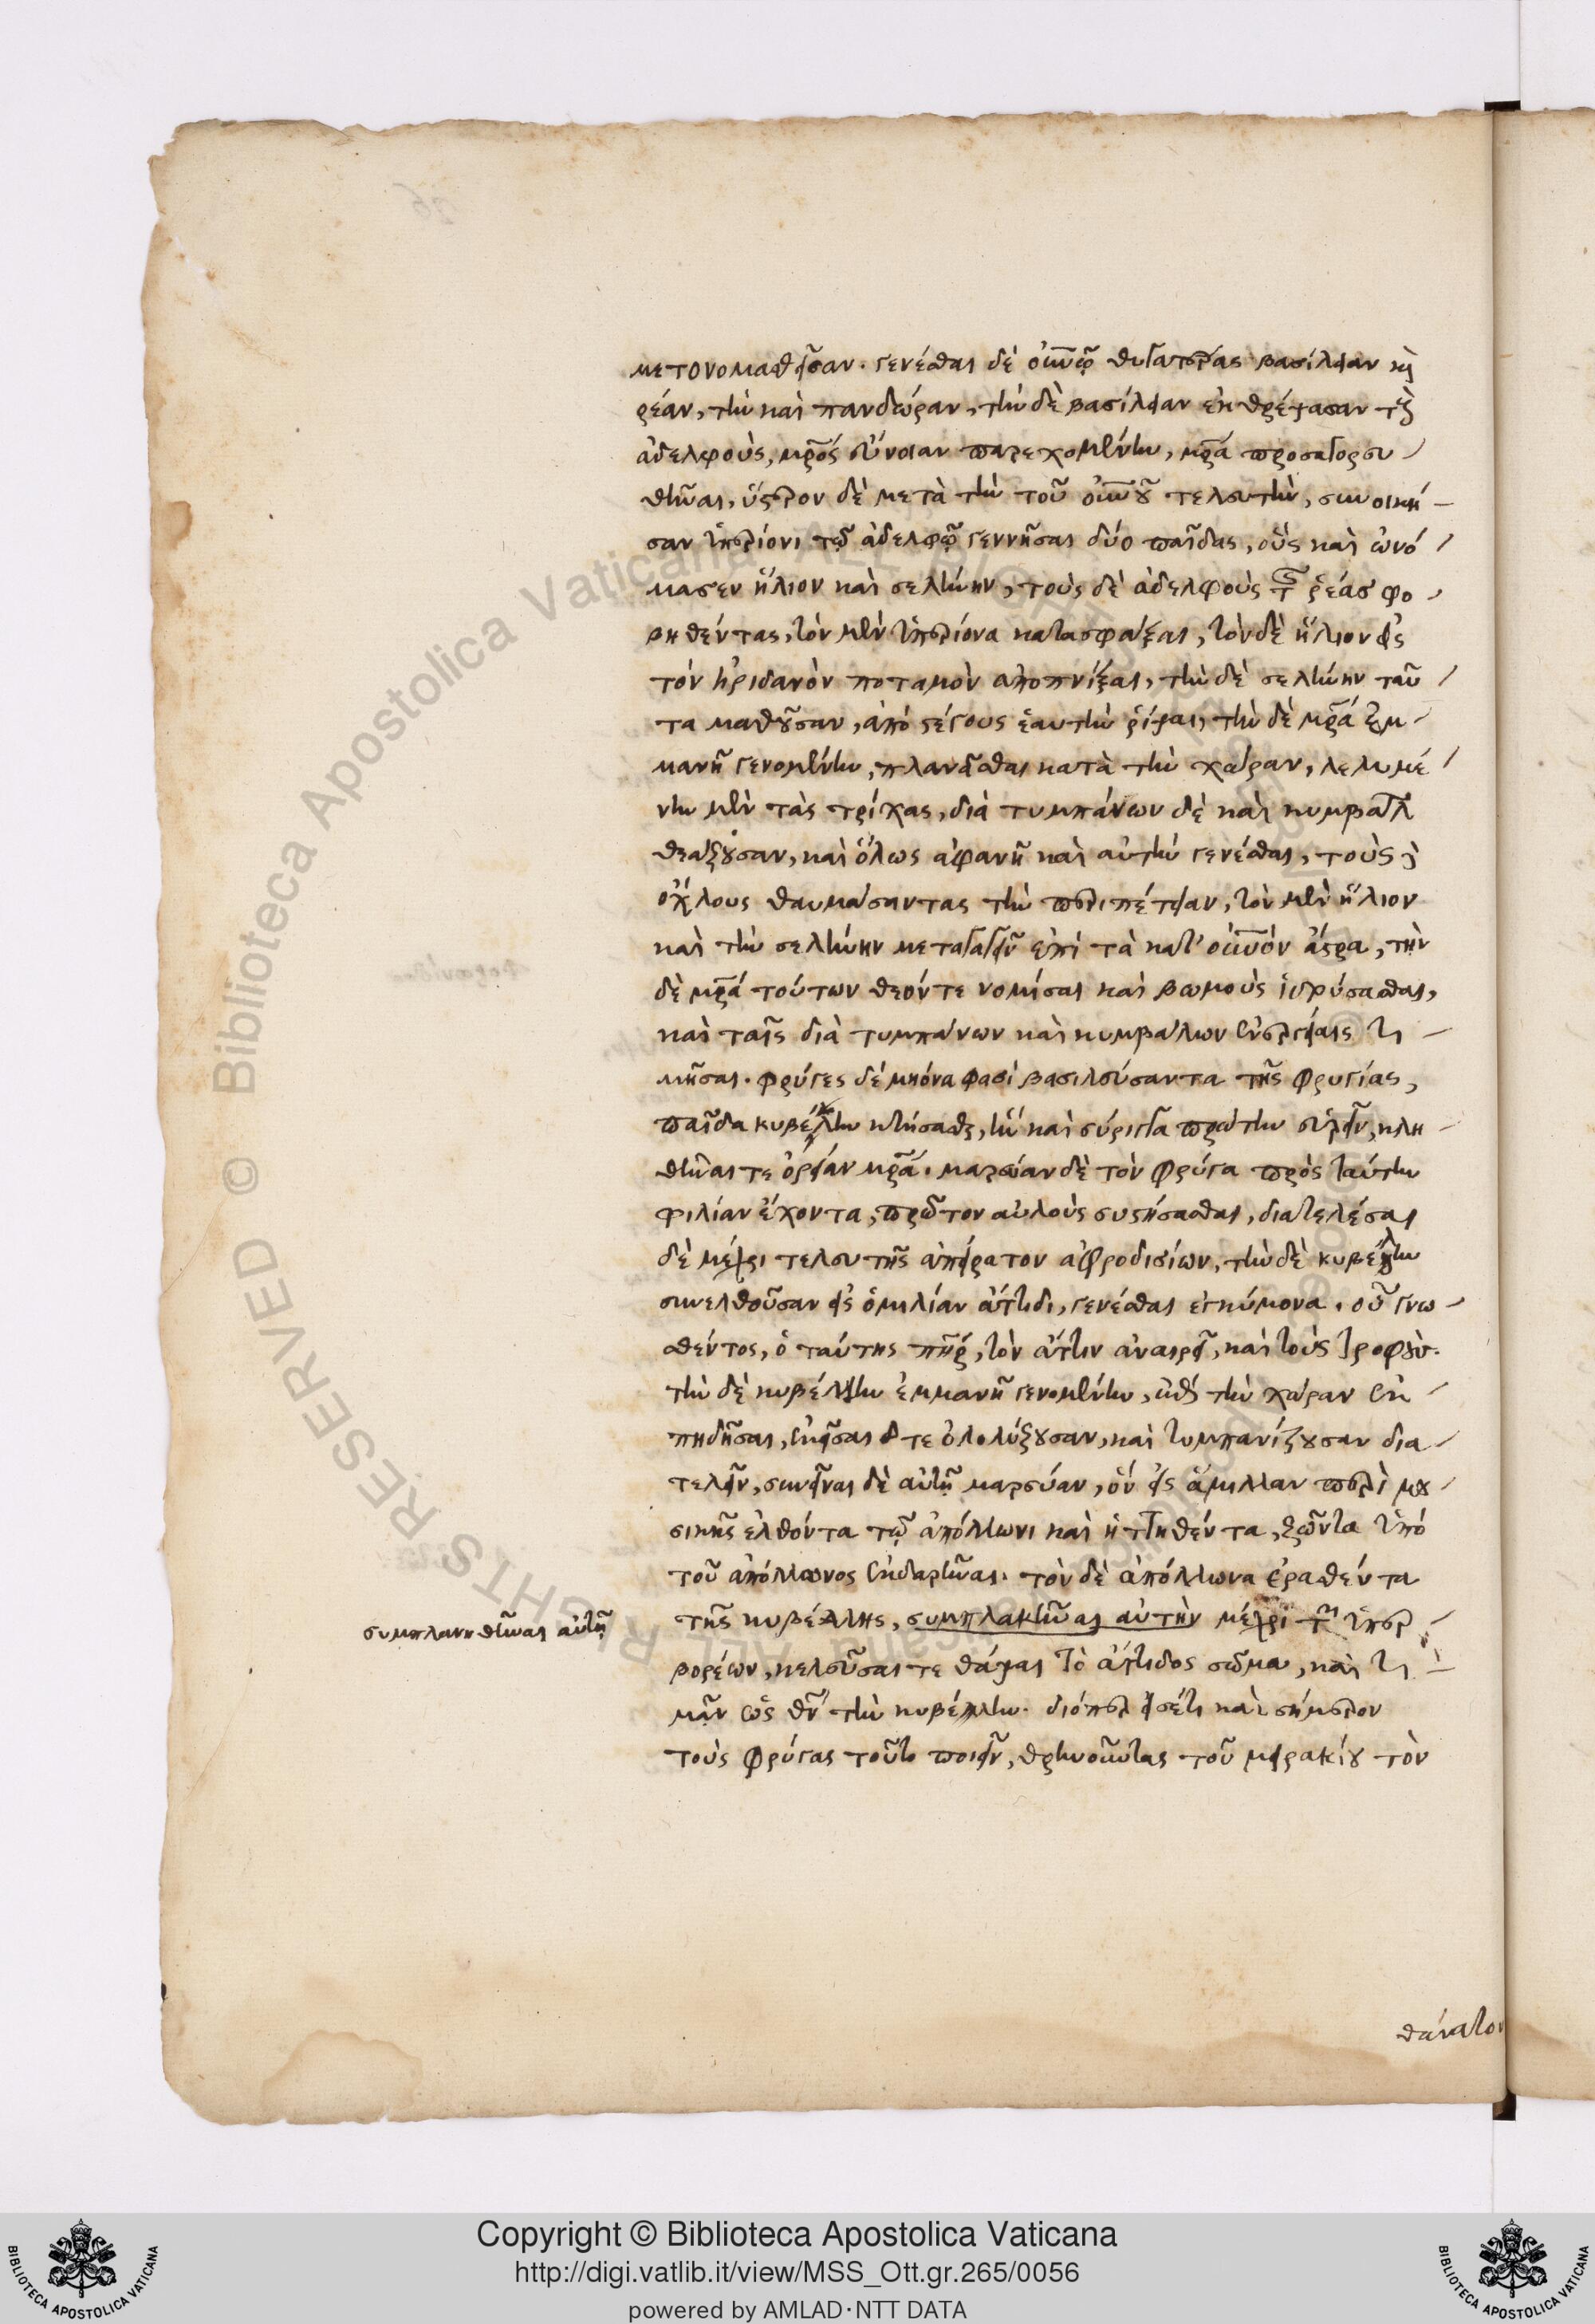 μετονομασθῆσαν. γενέσθαι δὲ οὐνῷ θυγατέρας βασίλειαν καὶ
ῥέαν, τὴν καὶ πανδώραν, τὴν δὲ βασίλειαν ἐκθρέψασαν τοὺς
ἀδελφοὺς, μρὸς εὔνοιαν παρεχομένην, μρα προσαγορευ
θῆναι, ὕστερον δὲ μετὰ τὴν τοῦ οὐνοῦ τελευτὴν, συνοικη
σαν ὑπερίονι τῷ ἀδελφῷ γεννῆσαι δύο παῖδας, οὓς καὶ ὠνό
μασεν ἥλιον καὶ σελήνην, τοὺς δὲ ἀδελφοὺς τῆς ῥέας φο
βηθέντας, τὸν μὲν ὑπερίονα κατασφάξαι, τὸν δὲ ἥλιον εἰς
τὸν ἠριδανὸν ποταμὸν ἀποπνίξαι, τὴν δὲ σελήνην ταῦ
τα μαθοῦσαν, ἀπὸ στέγους ἑαυτὴν ῥίψαι, τὴν δὲ μρα ἐμ
μανῆ γενομένην, πλανᾶσθαι κατὰ τὴν χώραν, λελυμέ
νην μὲν τὰς τρίχας, διὰ τυμπάνων δὲ καὶ κυμβάλων
θεάζουσαν, καὶ ὅλως ἀφανῆ καὶ αὐτὴν γενέσθαι, τοὺς δὲ
ὄχλους θαυμάσαντας τὴν περιπέτειαν, τὸν μὲν ἥλιον
καὶ τὴν σελήνην μεταγαγεῖν ἐπὶ τὰ κατ' οὐνὸν ἄστρα, τὴν
δὲ μρα τούτων θεόν τε νομίσαι καὶ βωμοὺς ἱδρύσασθαι,
καὶ ταῖς διὰ τυμπάνων καὶ κυμβάλων ἐνεργείαις τι
μῆσαι. φρύγες δὲ μῄονα φασὶ βασιλεύσαντα τῆς φρυγίας,
παῖδα κυβέλην κτήσασθαι, ἣν καὶ σύριγγα πρώτην εὑρεῖν, κλη
θῆναι τε ὀρείαν μρα. μαρσύαν δὲ τὸν φρύγα πρὸς ταύτην
φιλίαν ἔχοντα, πρῶτον αὐλοὺς συστήσασθαι, διατελέσαι
δὲ μέχρι τελευτῆς ἀπείρατον ἀφροδισίων, τὴν δὲ κυβέλην
συνελθοῦσαν εἰς ὁμιλίαν ἄττιδι, γενέσθαι ἐγκύμονα. οὗ γνω
σθέντος, ὁ ταύτης πηρ, τὸν ἄττιν ἀναιρεῖ, καὶ τοὺς τροφούς.
τὴν δὲ κυβέλλην ἐμμανῆ γενομένην, εἰς τὴν χώραν ἐκ
πηδῆσαι, ὀλολύζουσαν, καὶ τυμπανίζουσαν δια
τελεῖν, συνεῖναι δὲ αὐτῇ μαρσύαν, ὃν εἰς ἅμιλλαν περὶ μου
σικῆς ἐλθόντα τῷ ἀπόλλωνι καὶ ἡττηθέντα, ζῶντα ὑπὸ
τοῦ ἀπόλλωνος ἐκδαρῆναι. τὸν δὲ ἀπόλλωνα ἐρασθέντα
τῆς κυβέλλης, συμπλακῆναι αὐτὴν μέχρι τῶν ὑπερ
συμπλανηθῆναι αὐτῇ
βορέων, κελεῦσαι τε θάψαι τὸ ἄττιδος σῶμα, καὶ τι
μᾶν ὡς θν τὴν κυβέλλην. διόπερ εἰσέτι καὶ σήμερον
τοὺς φρύγας τοῦτο ποιεῖν, θρηνοῦντας τοῦ μειρακίου τὸν
θάνατον
Copyright © Biblioteca Apostolica Vaticana
http://digi.vatlib.it/view/MSS_Ott.gr.265/0056
powered by AMLAD·NTT DATA